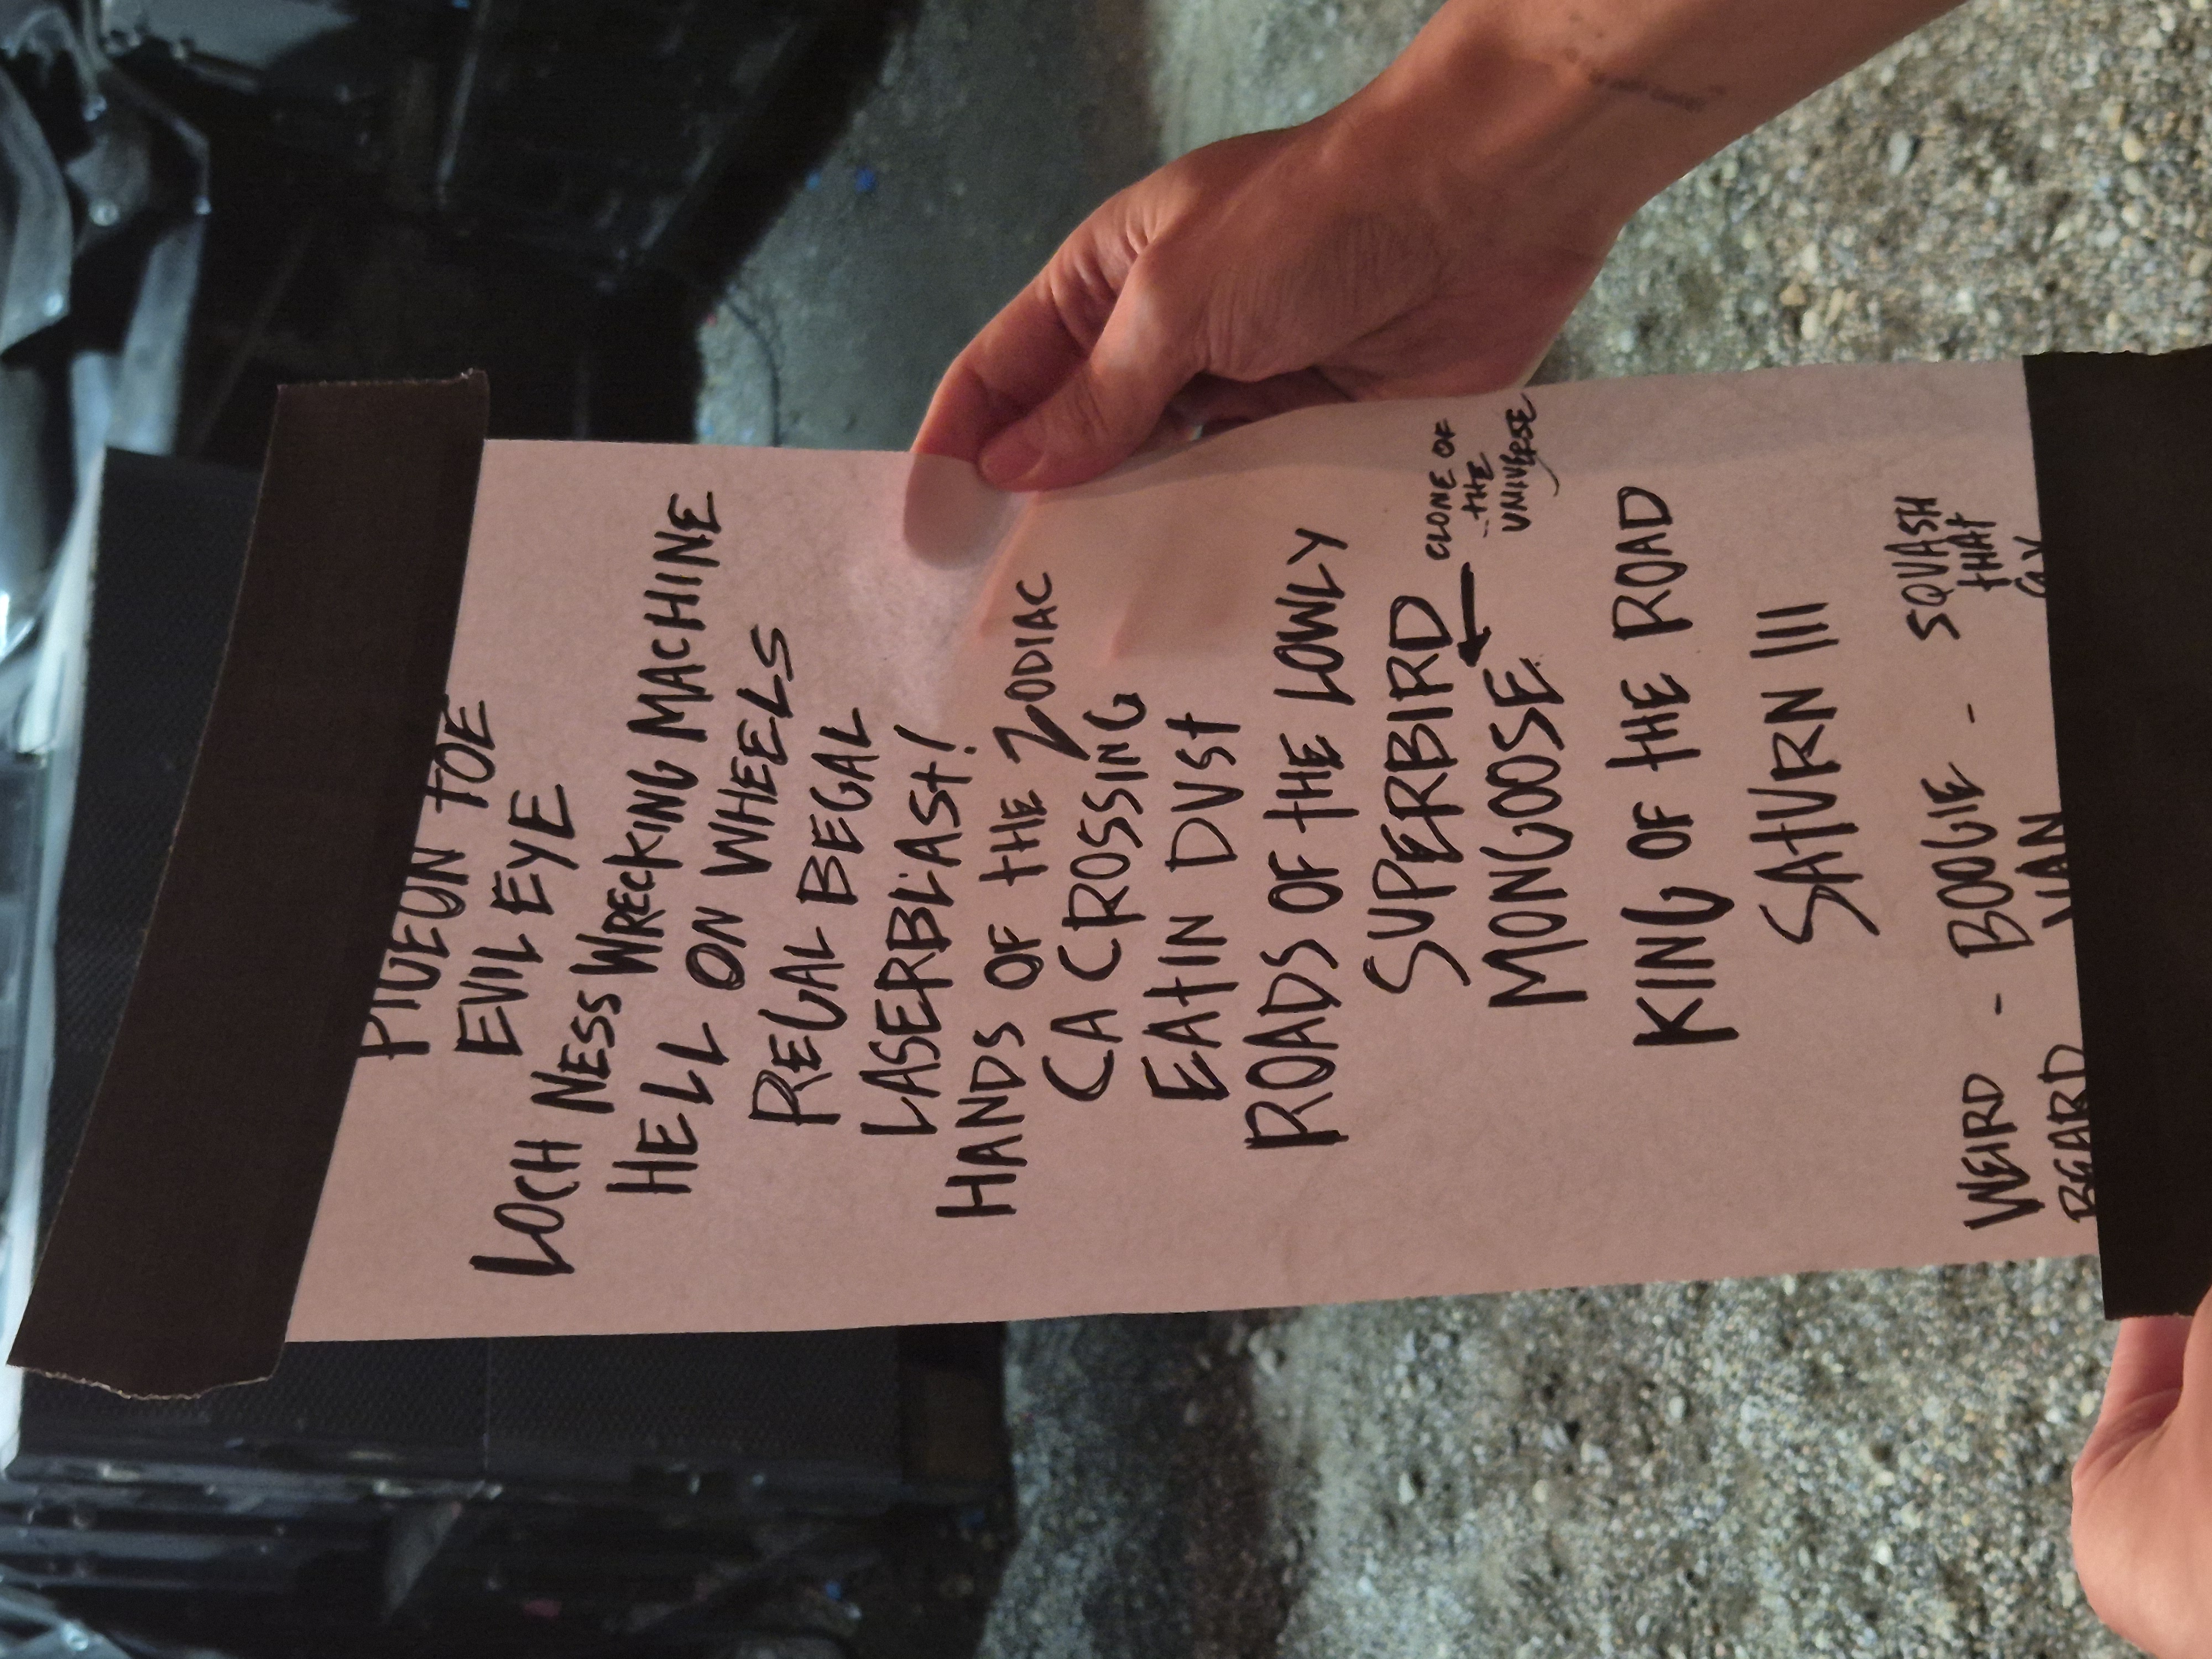 PIGEON TOE
EVIL EYE
LOCH NESS WRECKING MACHINE
HELL ON WHEELS
REGAL BEGAL
LASERBLAST!
HANDS OF THE ZODIAC
CA CROSSING
EATIN DUST
ROADS OF THE LOWLY
SUPERBIRD
CLONE OF
THE
UNIVERSE
MONGOOSE
KING OF THE ROAD
SATURN III
WEIRD - BOOGIE - SQUASH
BEARD VAN THAT